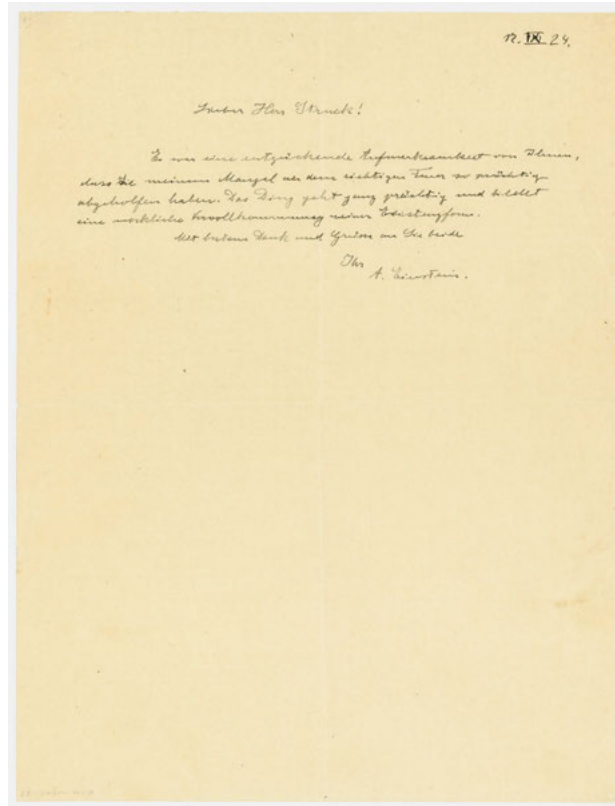 12. IX 24.
Lieber Herr Struck!
Es war eine entzückende Aufmerksamkeit von Ihnen,
dass Sie meinem Mangel an dem richtigen Feuer so prächtig
abgeholfen haben. Das Ding geht ganz prächtig und bildet
eine wirkliche Vervollkommnung meiner Existenzform.
Mit bestem Dank und Grüssen an Sie beide
Ihr
A. Einstein.